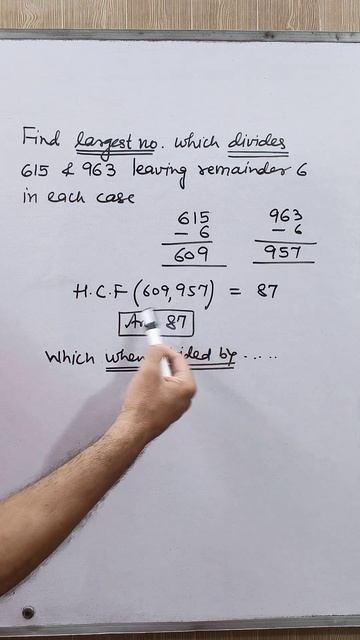 Find largest no. which divides
615 & 963 leaving remainder 6
in each case
615 963
- 6 - 6
609 957
H.C.F (609,957) = 87
87
Which by .....